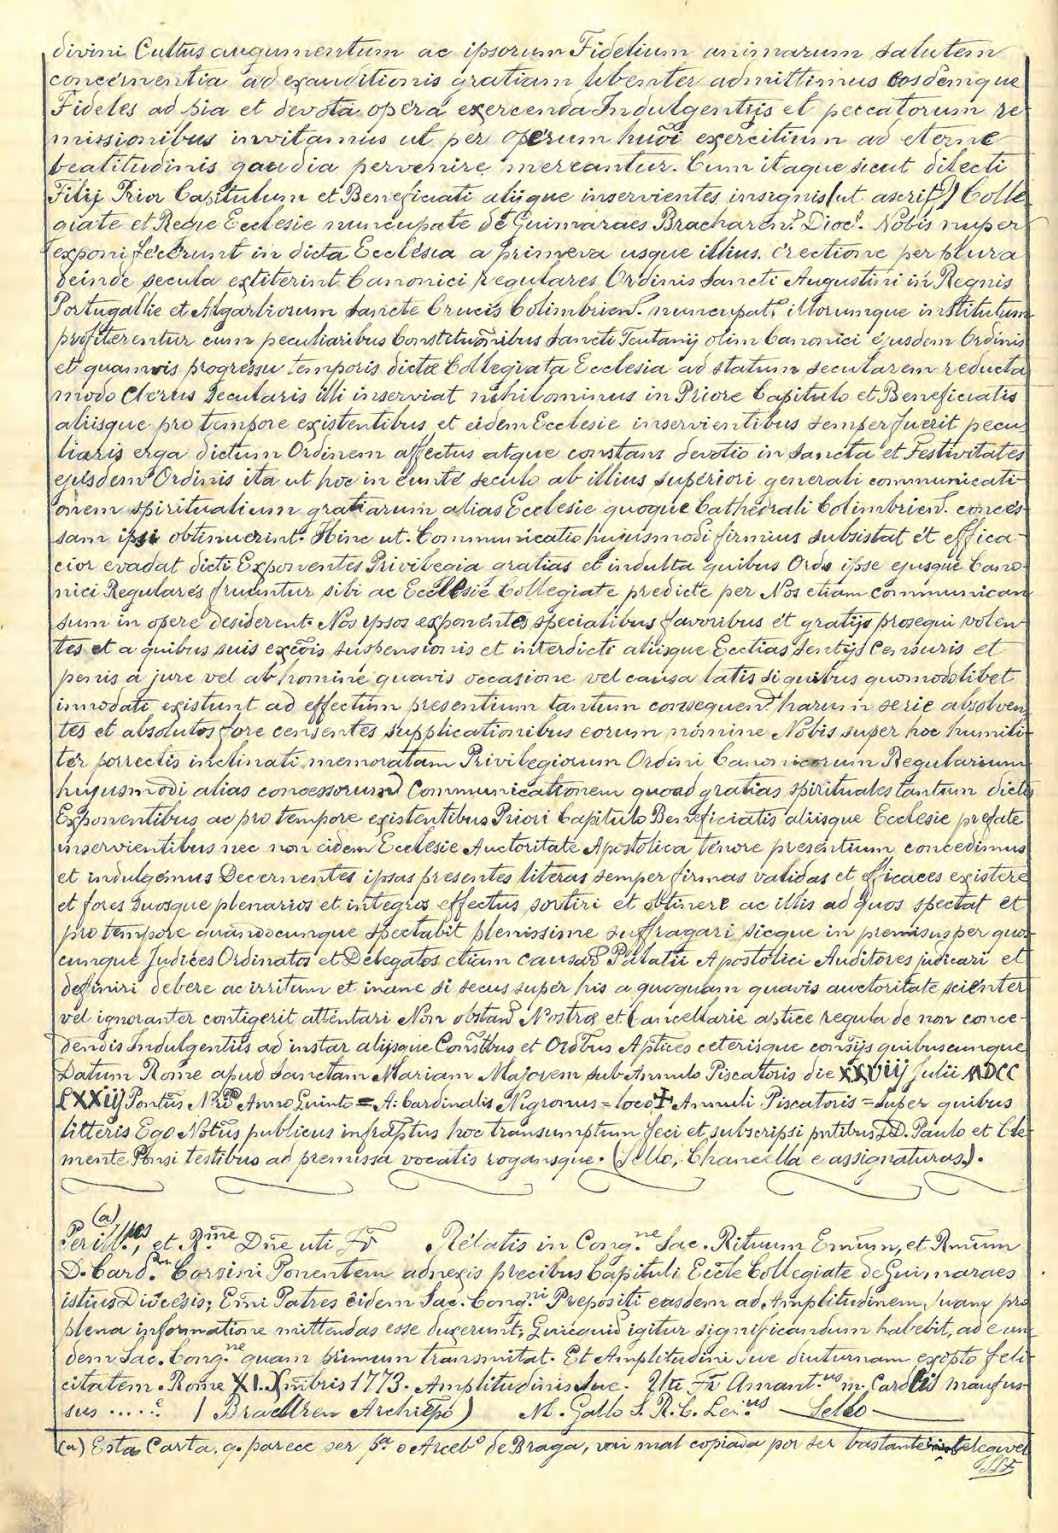 divini Cultus augumentum ac ipsorum Fidelium animarum salutem
concernentia ad exauditionis gratiam libenter admittimus eosdemque
Fideles ad pia et devota opera exercenda Indulgentijs et peccatorum re
missionibus invitamus ut per operum huõi exercitium ad eterne
beatitudinis gaudia pervenire mereantur. Cum itaque sicut dilecti
Filij Prior Capitulum et Beneficiati alijque inservientes insignis (ut ascrit) Colle
giate et Regie Ecclesie nuncupate de Guimaraes Bracharen. Dioc. Nobis nuper
exponi fecerunt in dicta Ecclesia a primeva usque illius erectione per plura
deinde secula extiterint Canonici Regulares Ordinis Sancti Augustini in Regnis
Portugallie et Algarbiorum Sancte Crucis Colimbrien. nuncupat. illorumque institutum
profiterentur cum peculiaribus Constitutõnibus Sancti Teutonij olim Canonici ejusdem Ordinis
et quamvis progressu temporis dicta Collegiata Ecclesia ad statum secularem reducta
modo Clerus Secularis illi inserviat nihilominus in Priore Capitulo et Beneficiatis
aliisque pro tempore existentibus et eidem Ecclesie inservientibus semper fuerit pecu
liaris erga dictum Ordinem affectus atque constans devotio in Sancta et Festivitates
ejusdem Ordinis ita ut hoc in eunte seculo ab illius superiori generali communicati-
onem spiritualium gratiarum alias Ecclesie quoque Cathedrali Colimbrien. conces-
sam ipsi obtinuerint. Hinc ut Communicatio hujusmodi firmius subsistat et effica-
cior evadat dicti Exponentes Privilegia gratias et indulta quibus Ordo ipse ejusque Cano-
nici Regulares fruuntur sibi ac Ecclesie Collegiate predicte per Nos etiam communican
sum in opere desiderent. Nos ipsos exponentes specialibus favoribus et gratijs prosequi volen-
tes et a quibus suis excõis suspensionis et interdicti aliisque Ecctias Sentijs Censuris et
penis a jure vel ab homine quavis occasione vel causa latis si quibus quomodolibet
innodati existunt ad effectum presentium tantum consequen. harum serie absolven
tes et absolutos fore censentes supplicationibus eorum nomine Nobis super hoc humili-
ter porrectis inclinati memoratam Privilegiorum Ordini Canonicorum Regularium
hujusmodi alias concessorum Communicationem quoad gratias spirituales tantum dictis
Exponentibus ac pro tempore existentibus Priori Capitulo Beneficiatis aliisque Ecclesie prefate
inservientibus nec non eidem Ecclesie Auctoritate Apostolica tenore presentium concedimus
et indulgemus Decernentes ipsas presentes literas semper firmas validas et efficaces existere
et fores suosque plenarios et integros effectus sortiri et obtinere ac illis ad quos spectat et
pro tempore quandocunque spectabit plenissime suffragari sicque in premissus per quos
cunque Judices Ordinatos et Delegatos etiam causar. Palatii Apostolici Auditores judicari et
definiri debere ac irritum et inane si secus super his a quoquam quavis auctoritate scienter
vel ignoranter contigerit attentari Non obstan. Nostra et Cancellarie aptice regula de non conce-
dendis Indulgentiis ad instar alijsque Constbus et Ordbus Aptices ceterisque consijs quibuscunque
Datum Rome apud Sanctam Mariam Majorem sub Annulo Piscatoris die XXVIIj Julii MDCC
LXXIIJ Pontus Nri Anno Quinto = A. Cardinalis Nigronus = loco ✝ Annuli Piscatoris = Super quibus
litteris Ego Notus publicus infraptus hoc transumptum feci et subscripsi pntibus DD. Paulo et Cle-
mente Ponsi testibus ad premissa vocatis rogansque. (Sello, Chancella e assignaturas).
(a)
Per ill.res, et R.me Dñe uti Fr Relatis in Cong.ne Sac. Rituum Emum, et Rmum
D. Card. Corsini Ponentem adnexis precibus Capituli Eccle Collegiate de Guimaraes
istius Diocesis; Emi Patres eidem Sac. Cong.ni Prepositi easdem ad Amplitudinem Suam pro
plena informatione mittendas esse duxerunt; Quicquid igitur significandum habebit, ad eun
dem Sac. Cong.ne quam primum transmitat. Et Amplitudini Sue diuturnam exopto feli
citatem. Rome XI. Xmbris 1773. Amplitudinis Sue. Uti Fr Amant.us m. Card.lis marefus-
sus ..... (Brachren Archiepo) M. Gallo S. R. C. Sec.us Sello
(a) Esta Carta, q. parece ser pa. o Arceb.o de Braga, vai mal copiada por ser bastante inelegivel